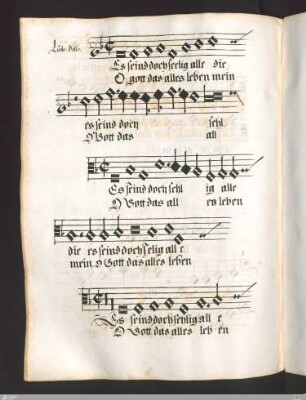 Es seind doch seelig alle die
O gott das alles leben mein
es seind doch sehl
O Gott das all
Es seind doch sehl ig alle
O Gott das all es leben
die es seind doch selig all e
mein O Gott das alles leben
Es seind doch sehlig all e
O Gott das alles leb en